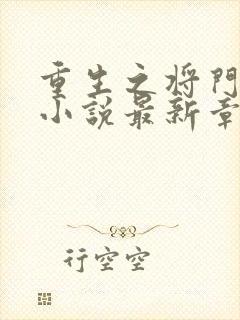 重生之将門
小説最新章
行空空